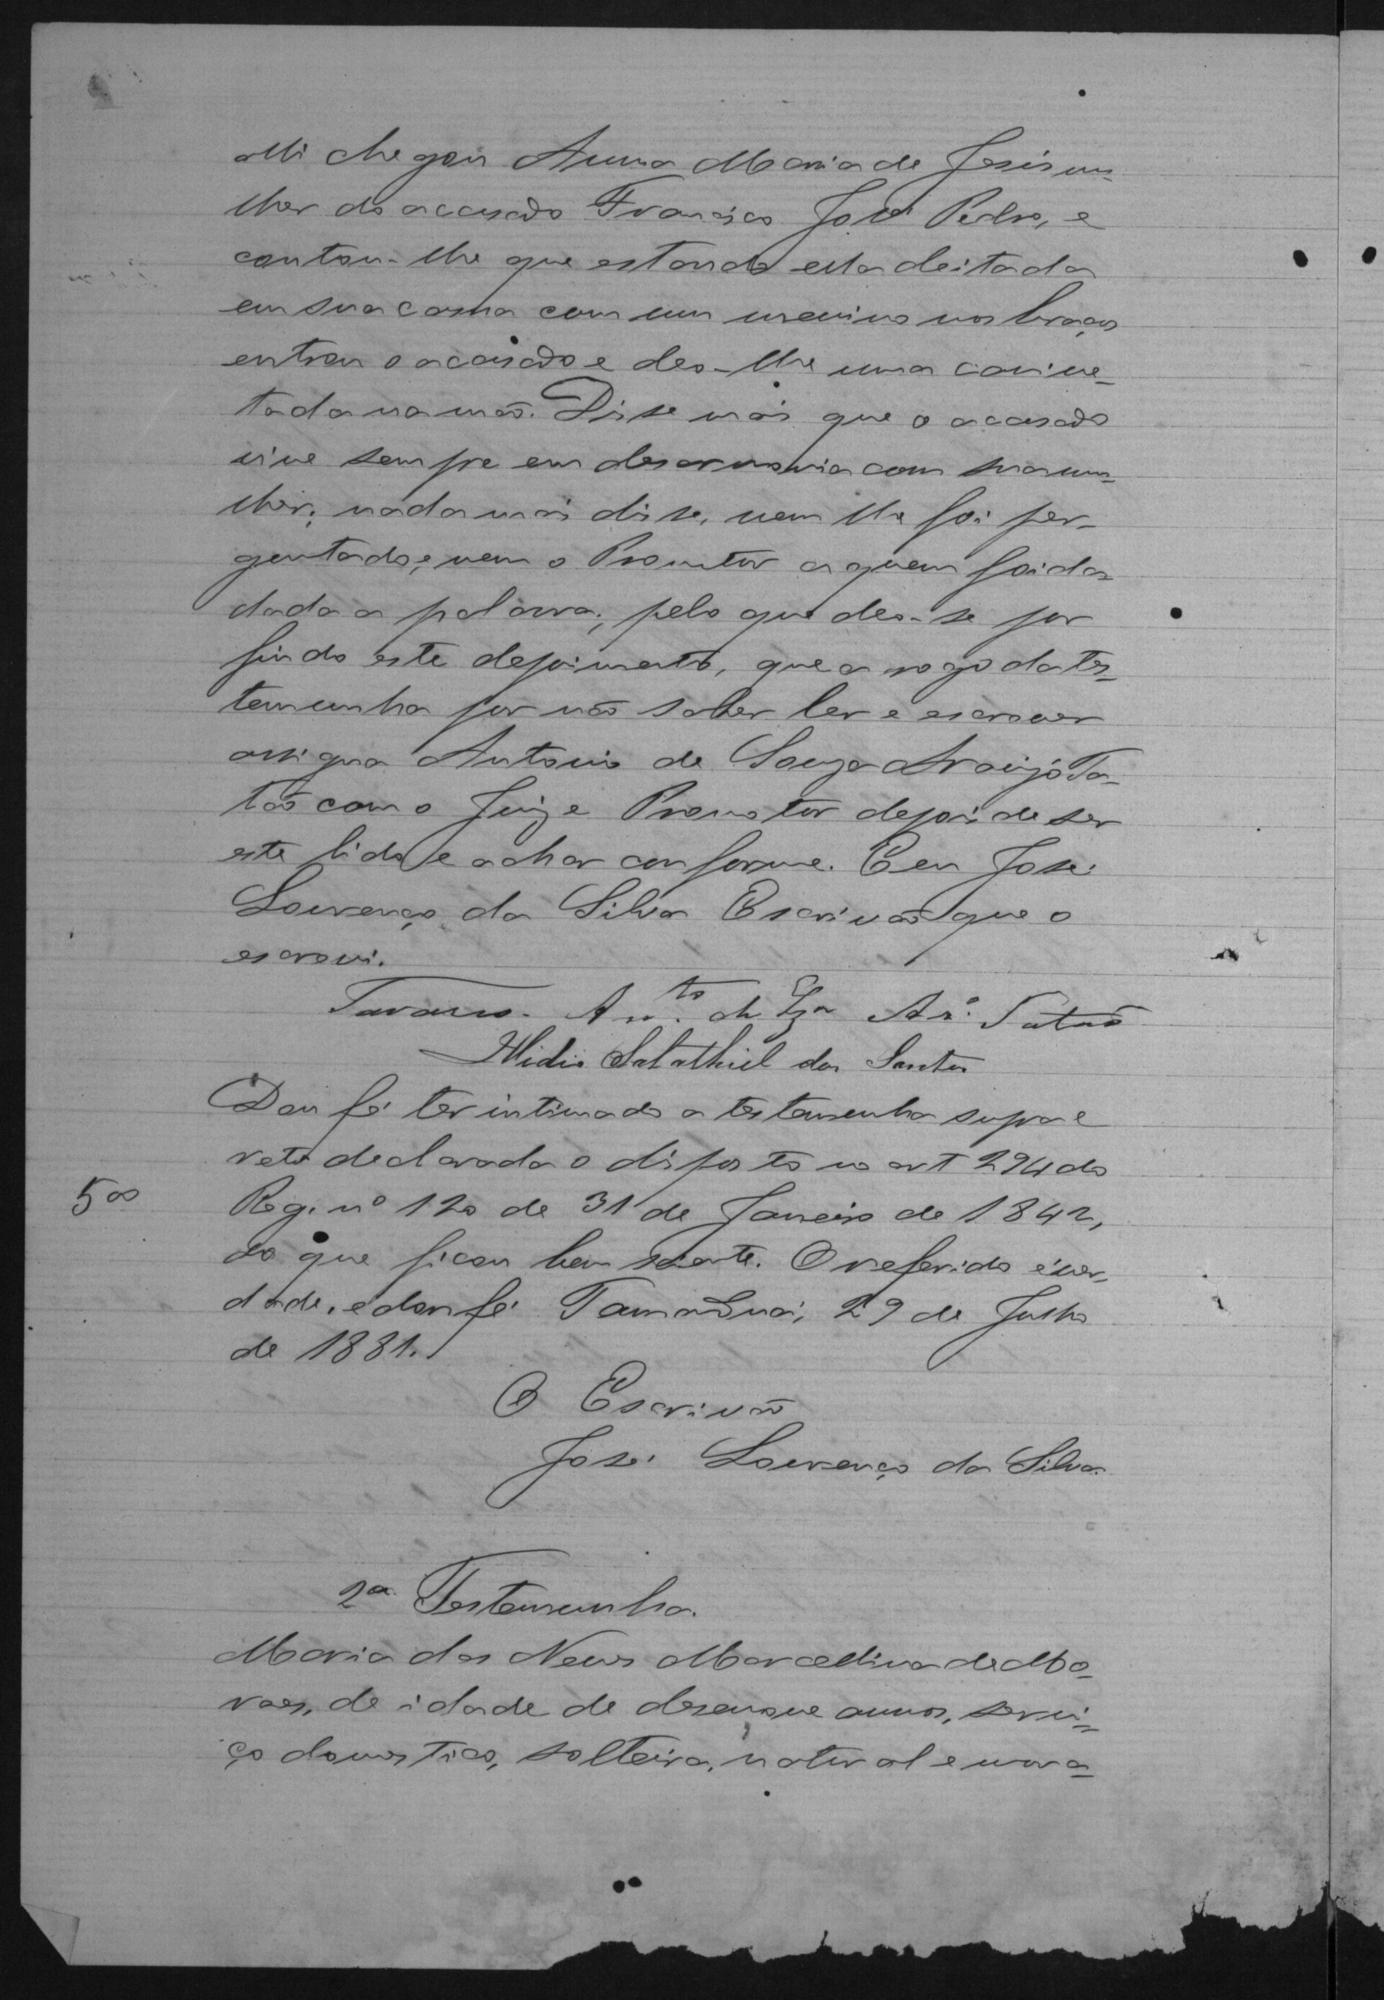 alli chegou Anna Maria de Jesus mu-
lher do accusado Francisco José Pedro, e
contou-lhe que estando ella deitada
em sua cama com um menino nos braços
entrou o accusado e deo-lhe uma canive-
tada na mão. Disse mais que o accusado
vive sempre em desarmonia com sua mu-
lher; nada mais disse, nem lhe foi per-
guntado, nem o Promotor a quem foi da
dada a palavra; pelo que deo-se por
findo este depoimento, que a rogo da tes-
temunha por não saber ler e escrever
assigna Antonio de Souza Araujo Ta-
tão com o Juiz e Promotor depois de ser
este lido e achar conforme. E eu José
Lourenço da Silva Escrivão que o
escrevi.
Tavares. Anto. de Sza Aro. Tatão
Ilidio Salathiel dos Santos
Dou fé ter intimado a testemunha supra e
reto declarada o disposto no art 294 do
500
Reg. nº 120 de 31 de Janeiro de 1842,
do que ficou bem sciente. O referido é ver-
dade, e dou fé. Tamanduá, 29 de Julho
de 1881.
O Escrivão
José Lourenço da Silva.
2ª Testemunha.
Maria das Neves Marcellina de Mo-
raes, de idade de desenove annos, servi-
ço domestico, solteira, natural e mora-